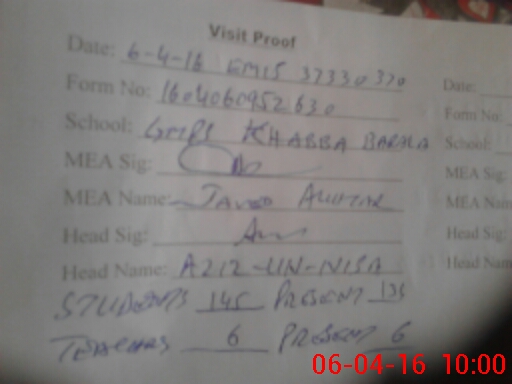 Visit Proof
Date: 6-4-16 EMIS 37330370
Form No: 1604060952630 Form No:
School: GMPS KHABBA BARALA School:
MEA Sig: MEA Sig:
MEA Name: JAVED AKHTAR MEA Nam
Head Sig: Head Sig:
Head Name: AZIZ-UN-NISA Head Nam
STUDENTS 145 PRESENT 135
TEACHERS 6 PRESENT 6
06-04-16 10:00